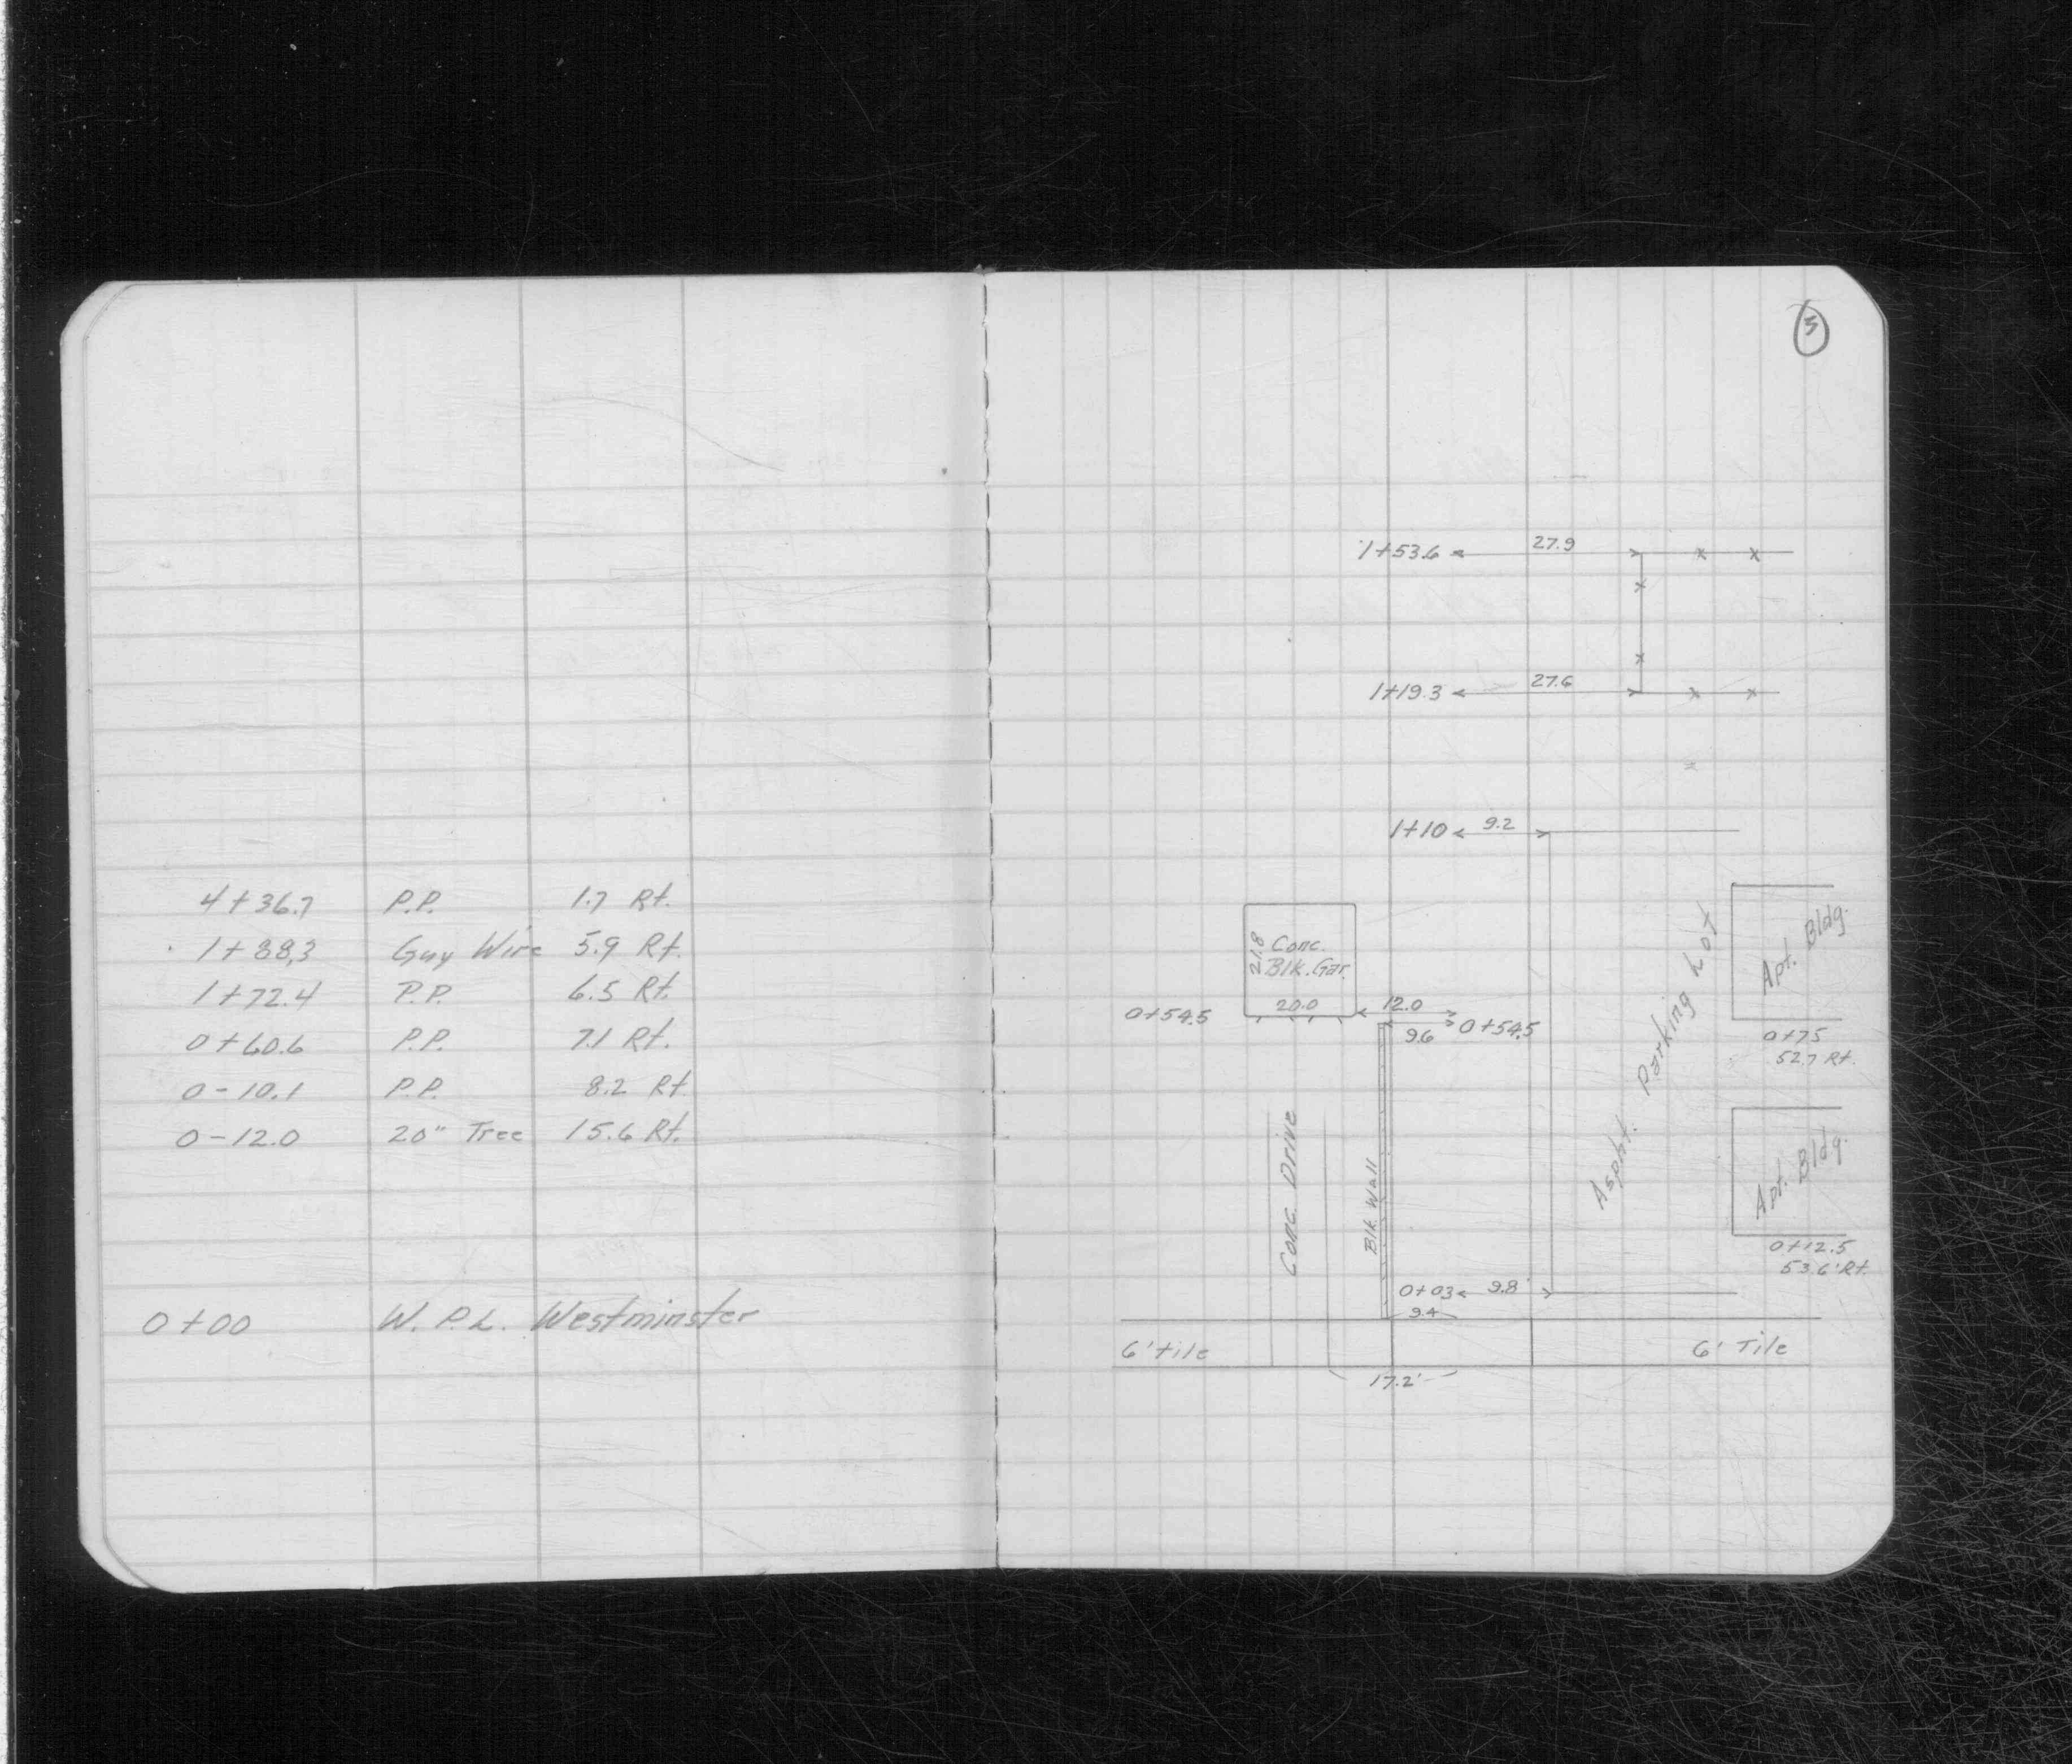 4+36.7 P.P. 1.7 Rt.
1+88.3 Guy Wire 5.9 Rt.
1+72.4 P.P. 6.5 Rt.
0+60.6 P.P. 7.1 Rt.
0-10.1 P.P. 8.2 Rt.
0-12.0 20" Tree 15.6 Rt.
0+00 W.P.L. Westminster
3
1+53.6 27.9
1+19.3 27.6
1+10 9.2
21.8 Conc.
Blk. Gar.
20.0
0+54.5
12.0
9.6 0+54.5
Apt. Bldg.
0+75
52.7 Rt.
Aspht. Parking Lot
Conc. Drive
Blk Wall
Apt. Bldg.
0+12.5
53.6' Rt.
0+03 9.8'
9.4
6' tile
6' Tile
17.2'